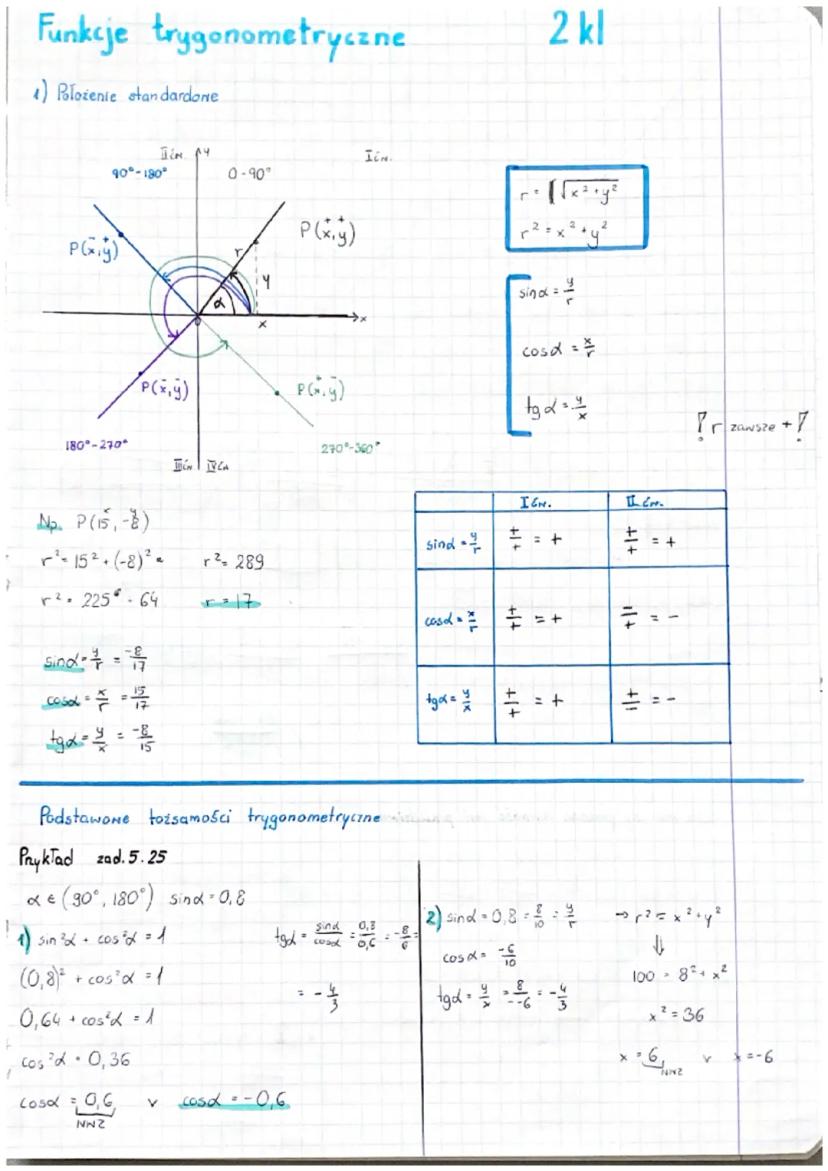 Funkcje trygonometryczne 2 kl
1) Położenie standardowe
II ćw. y I ćw.
90°-180° 0-90°
P(x̄,y⁺) P(x⁺,y⁺)
r
y
α
0 x x
P(x̄,ȳ) P(x⁺,ȳ)
180°-270° 270°-360°
III ćw IV ćw
r = √x²+y²
r² = x²+y²
sinα = y/r
cosα = x/r
tgα = y/x
! r zawsze + !
Np. P(15, -8)
x y
r² = 15² + (-8)² r² = 289
r² = 225 · 64 r = 17
sinα = y/r = -8/17
cosα = x/r = 15/17
tgα = y/x = -8/15
I ćw. II ćw.
sinα = y/r +/+ = + +/+ = +
cosα = x/r +/+ = + -/+ = -
tgα = y/x +/+ = + +/- = -
Podstawowe tożsamości trygonometryczne
Przykład zad. 5.25
α ∈ (90°, 180°) sinα = 0,8
1) sin²α + cos²α = 1
(0,8)² + cos²α = 1
0,64 + cos²α = 1
cos²α = 0,36
cosα = 0,6 v cosα = -0,6
NWZ
tgα = sinα/cosα = 0,8/0,6 = -8/6 =
= -4/3
2) sinα = 0,8 = 8/10 = y/r → r² = x²+y²
⇓
cosα = -6/10
100 = 8² + x²
tgα = y/x = 8/-6 = -4/3
x² = 36
x = 6 v x = -6
NWZ